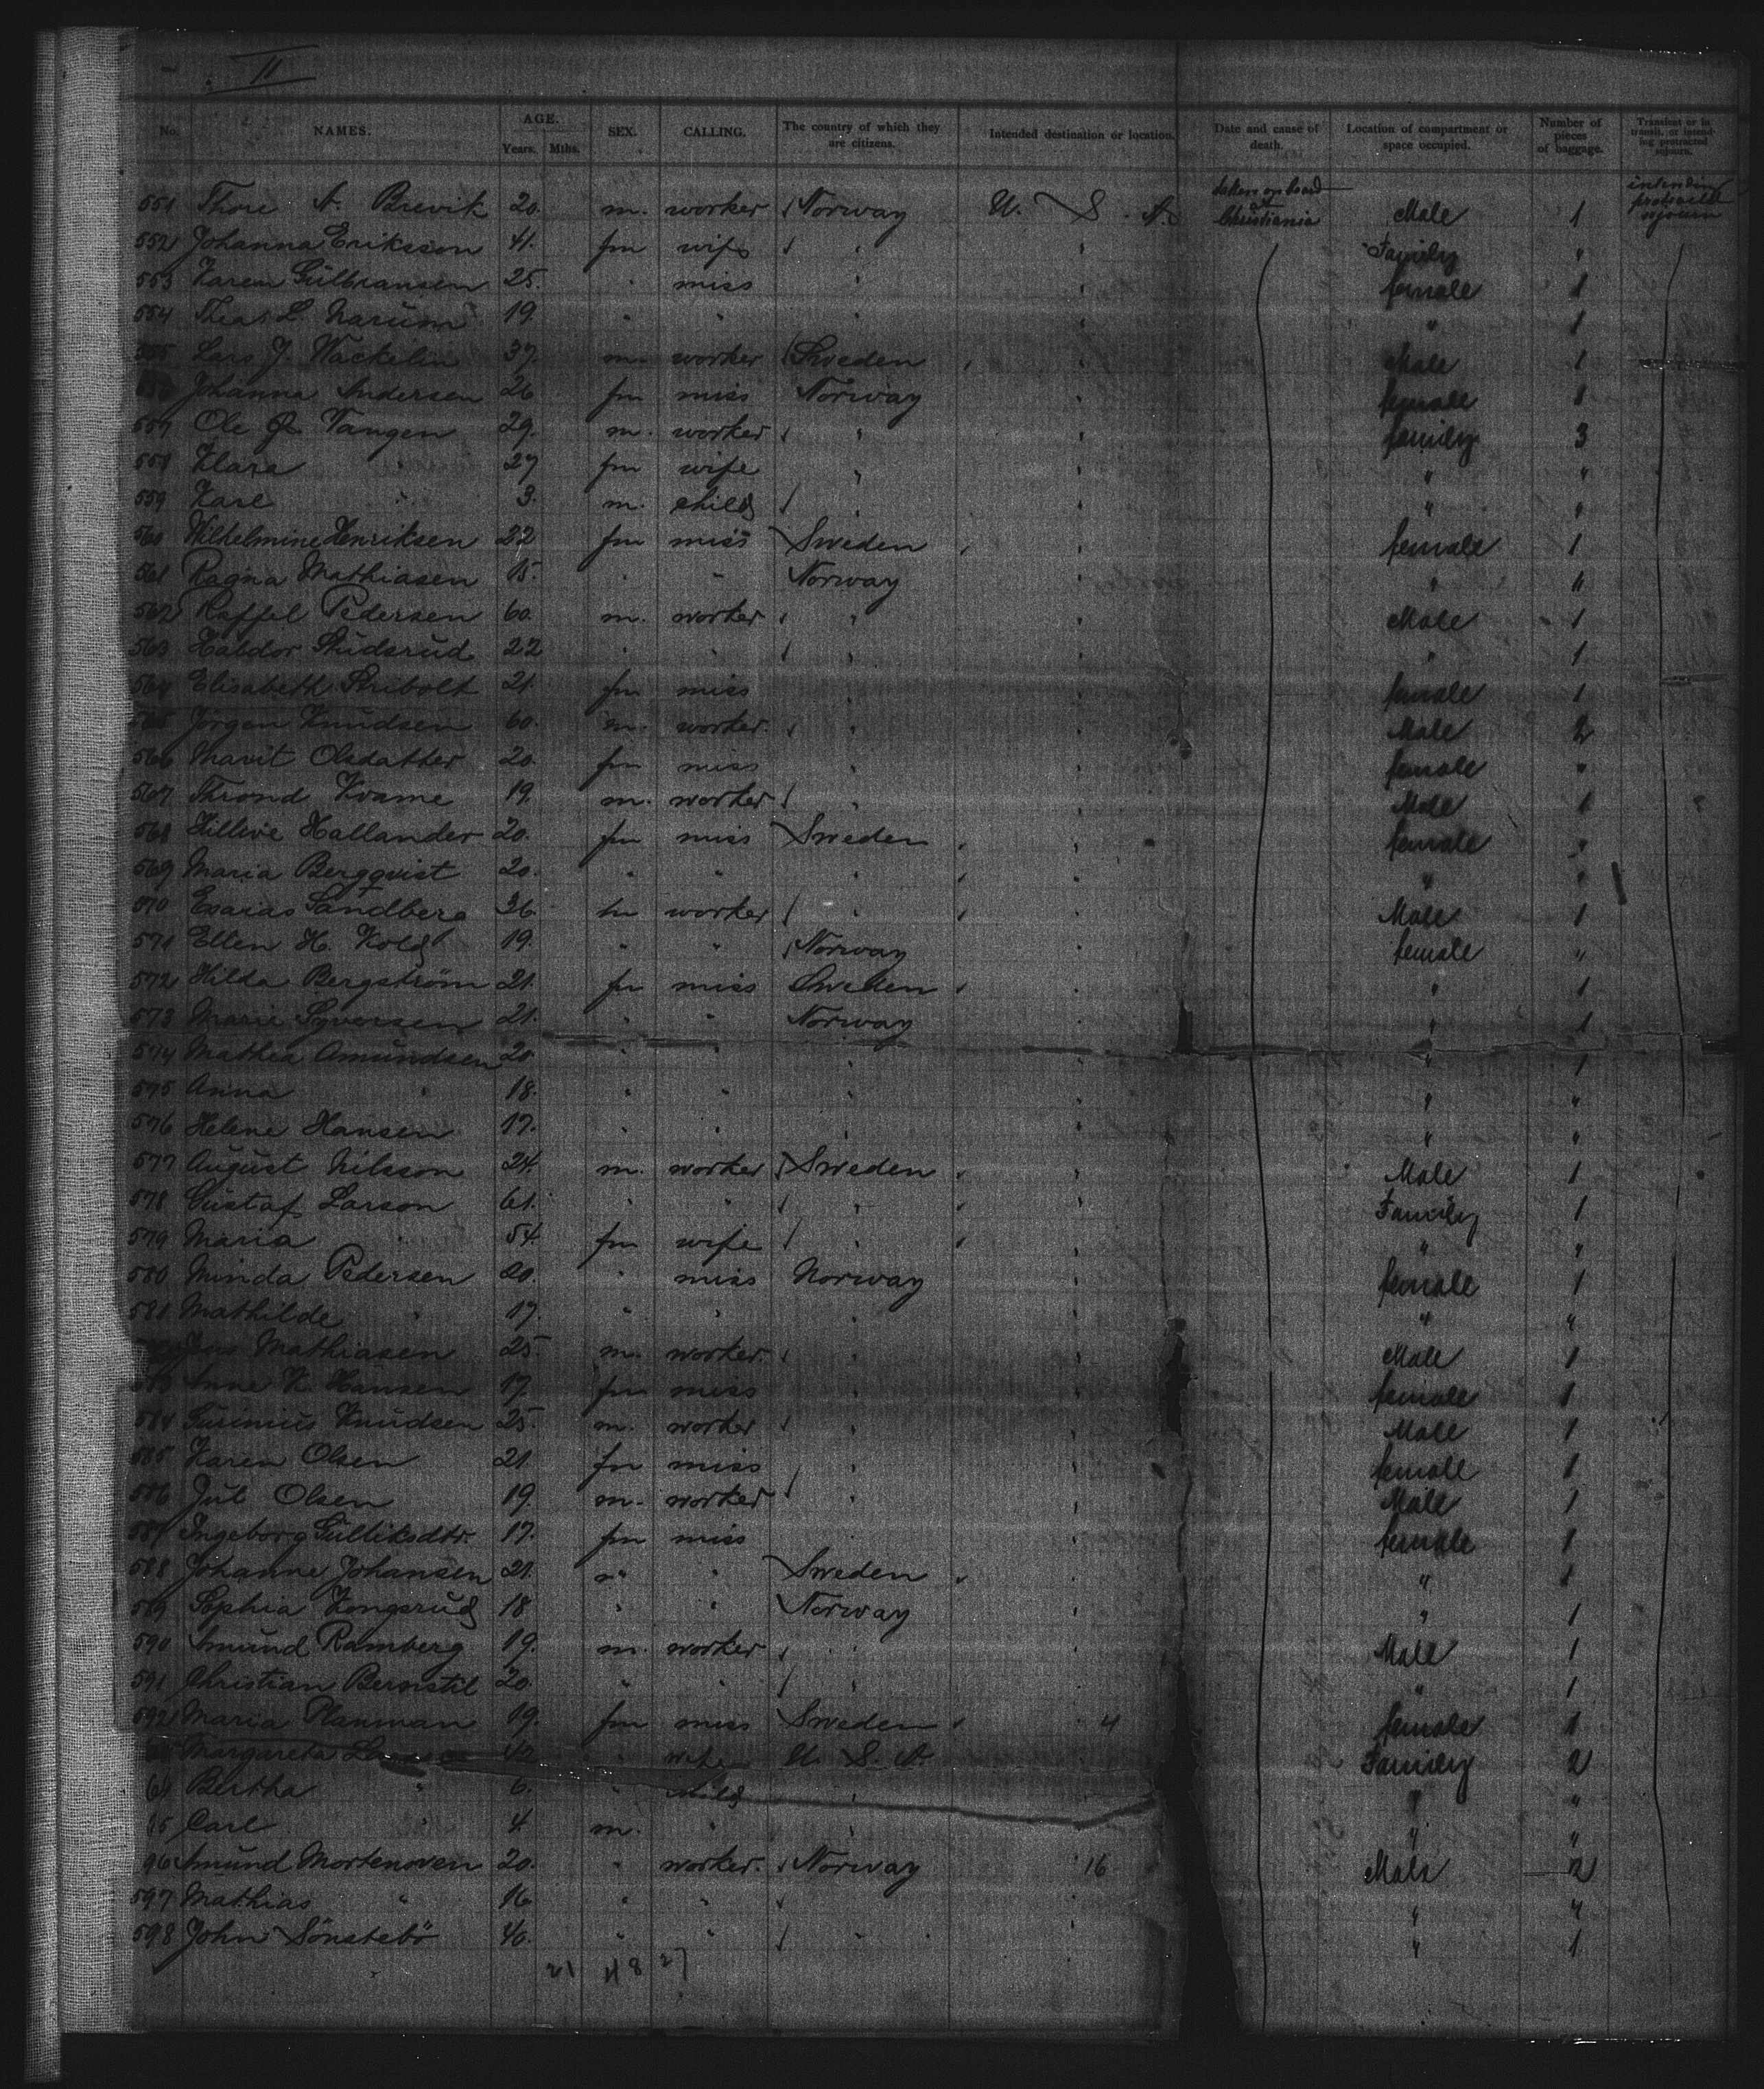 II
No. NAMES. AGE. Years. Mths. SEX. CALLING. The country of which they are citizens. Intended destination or location. Date and cause of death. Location of compartment or space occupied. Number of pieces of baggage. Transient or in transit, or intending protracted sojourn.
551 Thore A. Brevik 20. m. worker Norway U. S. A. taken on board at Christiania Male 1 intending protracted sojourn
552 Johanna Eriksson 41. fm wife " " Family "
553 Karen Gulbransen 25. " miss " " female 1
554 Thea L. Narum 19. " " " " " 1
555 Lars J. Wackelin 37. m. worker Sweden " Male 1
Johanna Andersen 26 fm miss Norway " female 1
557 Ole Vangen 29. m. worker " " family 3
558 Klara " 27 fm wife " " " "
559 Karl " 3. m. child " " " "
560 Wilhelmine Henriksen 22 fm miss Sweden " female 1
561 Ragna Mathiasen 15. " " Norway " " "
562 Raffel Pedersen 60. m. worker " " Male 1
563 Haldor Studsrud 22 " " " " " 1
564 Elisabeth Stribolt 21. fm miss " " female 1
565 Jörgen Knudsen 60. m. worker " " Male 2
566 Marit Olsdatter 20. fm miss " " female "
567 Thrond Kvame 19. m. worker " " Male 1
568 Hallander 20. fm miss Sweden " female "
569 Maria Bergqvist 20. " " " " " "
570 Esaias Sandberg 36. m worker " " Male 1
571 Ellen H. Kold 19. " " Norway female "
572 Hilda Bergström 21. fm miss Sweden " " 1
573 Marie Syversen 21. " " Norway " 1
574 Mathea Amundsen 20 " " " " " 1
575 Anna " 18. " " " " " "
576 Helene Hansen 17. " " " " " "
577 August Nilsson 24. m. worker Sweden " Male 1
578 Gustaf Larson 61. " " " " Family 1
579 Maria " 54. fm wife " " " "
580 Minda Pedersen 20. " miss Norway " female 1
581 Mathilde " 17. " " " " " "
Jens Mathiasen 25. m. worker " " Male 1
583 Anne K. Hansen 17. fm miss " " female 1
584 Knudsen 25. m. worker " " Male 1
585 Karen Olsen 21. fm miss " " female 1
586 Jul Olsen 19. m. worker " " Male 1
587 Ingeborg Gulliksdtr. 17. fm miss " " female 1
588 Johanne Johansen 21. " " Sweden " " 1
589 Sophia Kongsrud 18 " " Norway " " 1
590 Amund Ramberg 19. m. worker " " Male 1
591 Christian 20. " " " " " 1
592 Maria Planman 19. fm miss Sweden " 4 female 1
Margareta 42 " wife U. S. A. Family 2
Bertha " 6. " child " " "
Carl " 4 m. " " " "
96 Amund Mortenoven 20. " worker. Norway 16 Male 2
597 Mathias " 16 " " " " "
598 John Sönstebö 46. " " " " " 1
21 48 27